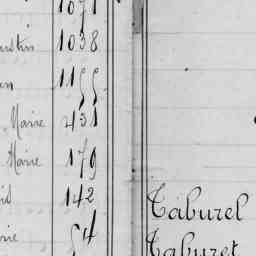 1071
ustin 1038
en 1155
Marie 431
Marie 179
il 142
rie 54
Taburel
Taburet